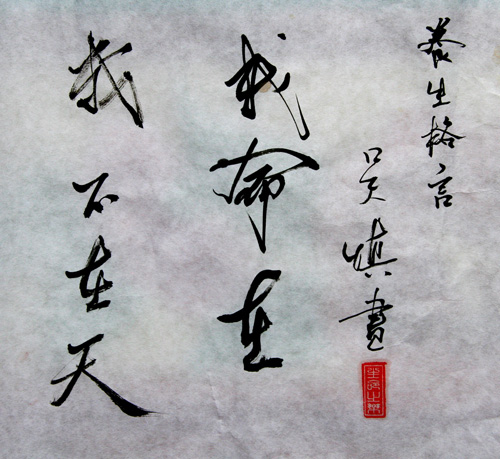 養生格言
吴慎書
我命在
我不在天